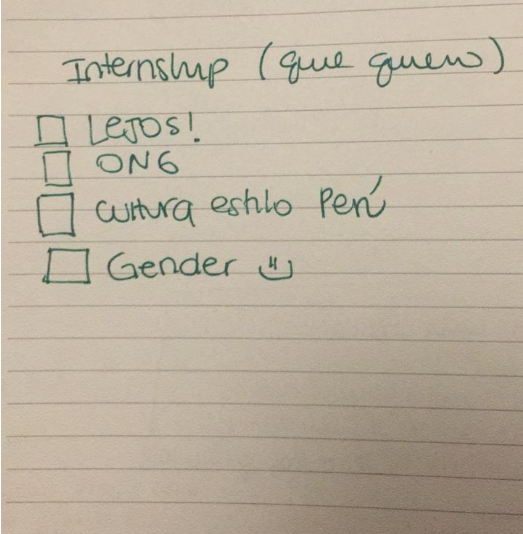 Internship (que quiero)
Lejos!
ONG
Cultura estilo Perú
Gender